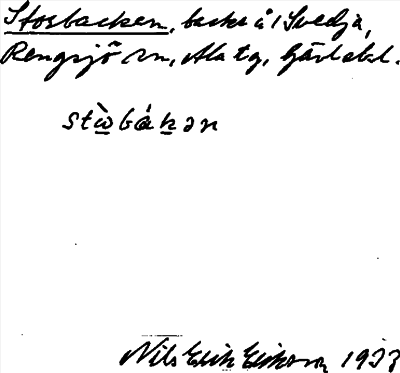 Storbacken, backe å 1 Svedja,
Rengsjö sn, Ala tg, Gävlebl.
stὼbákən
Nils Erik Eriksson 1933